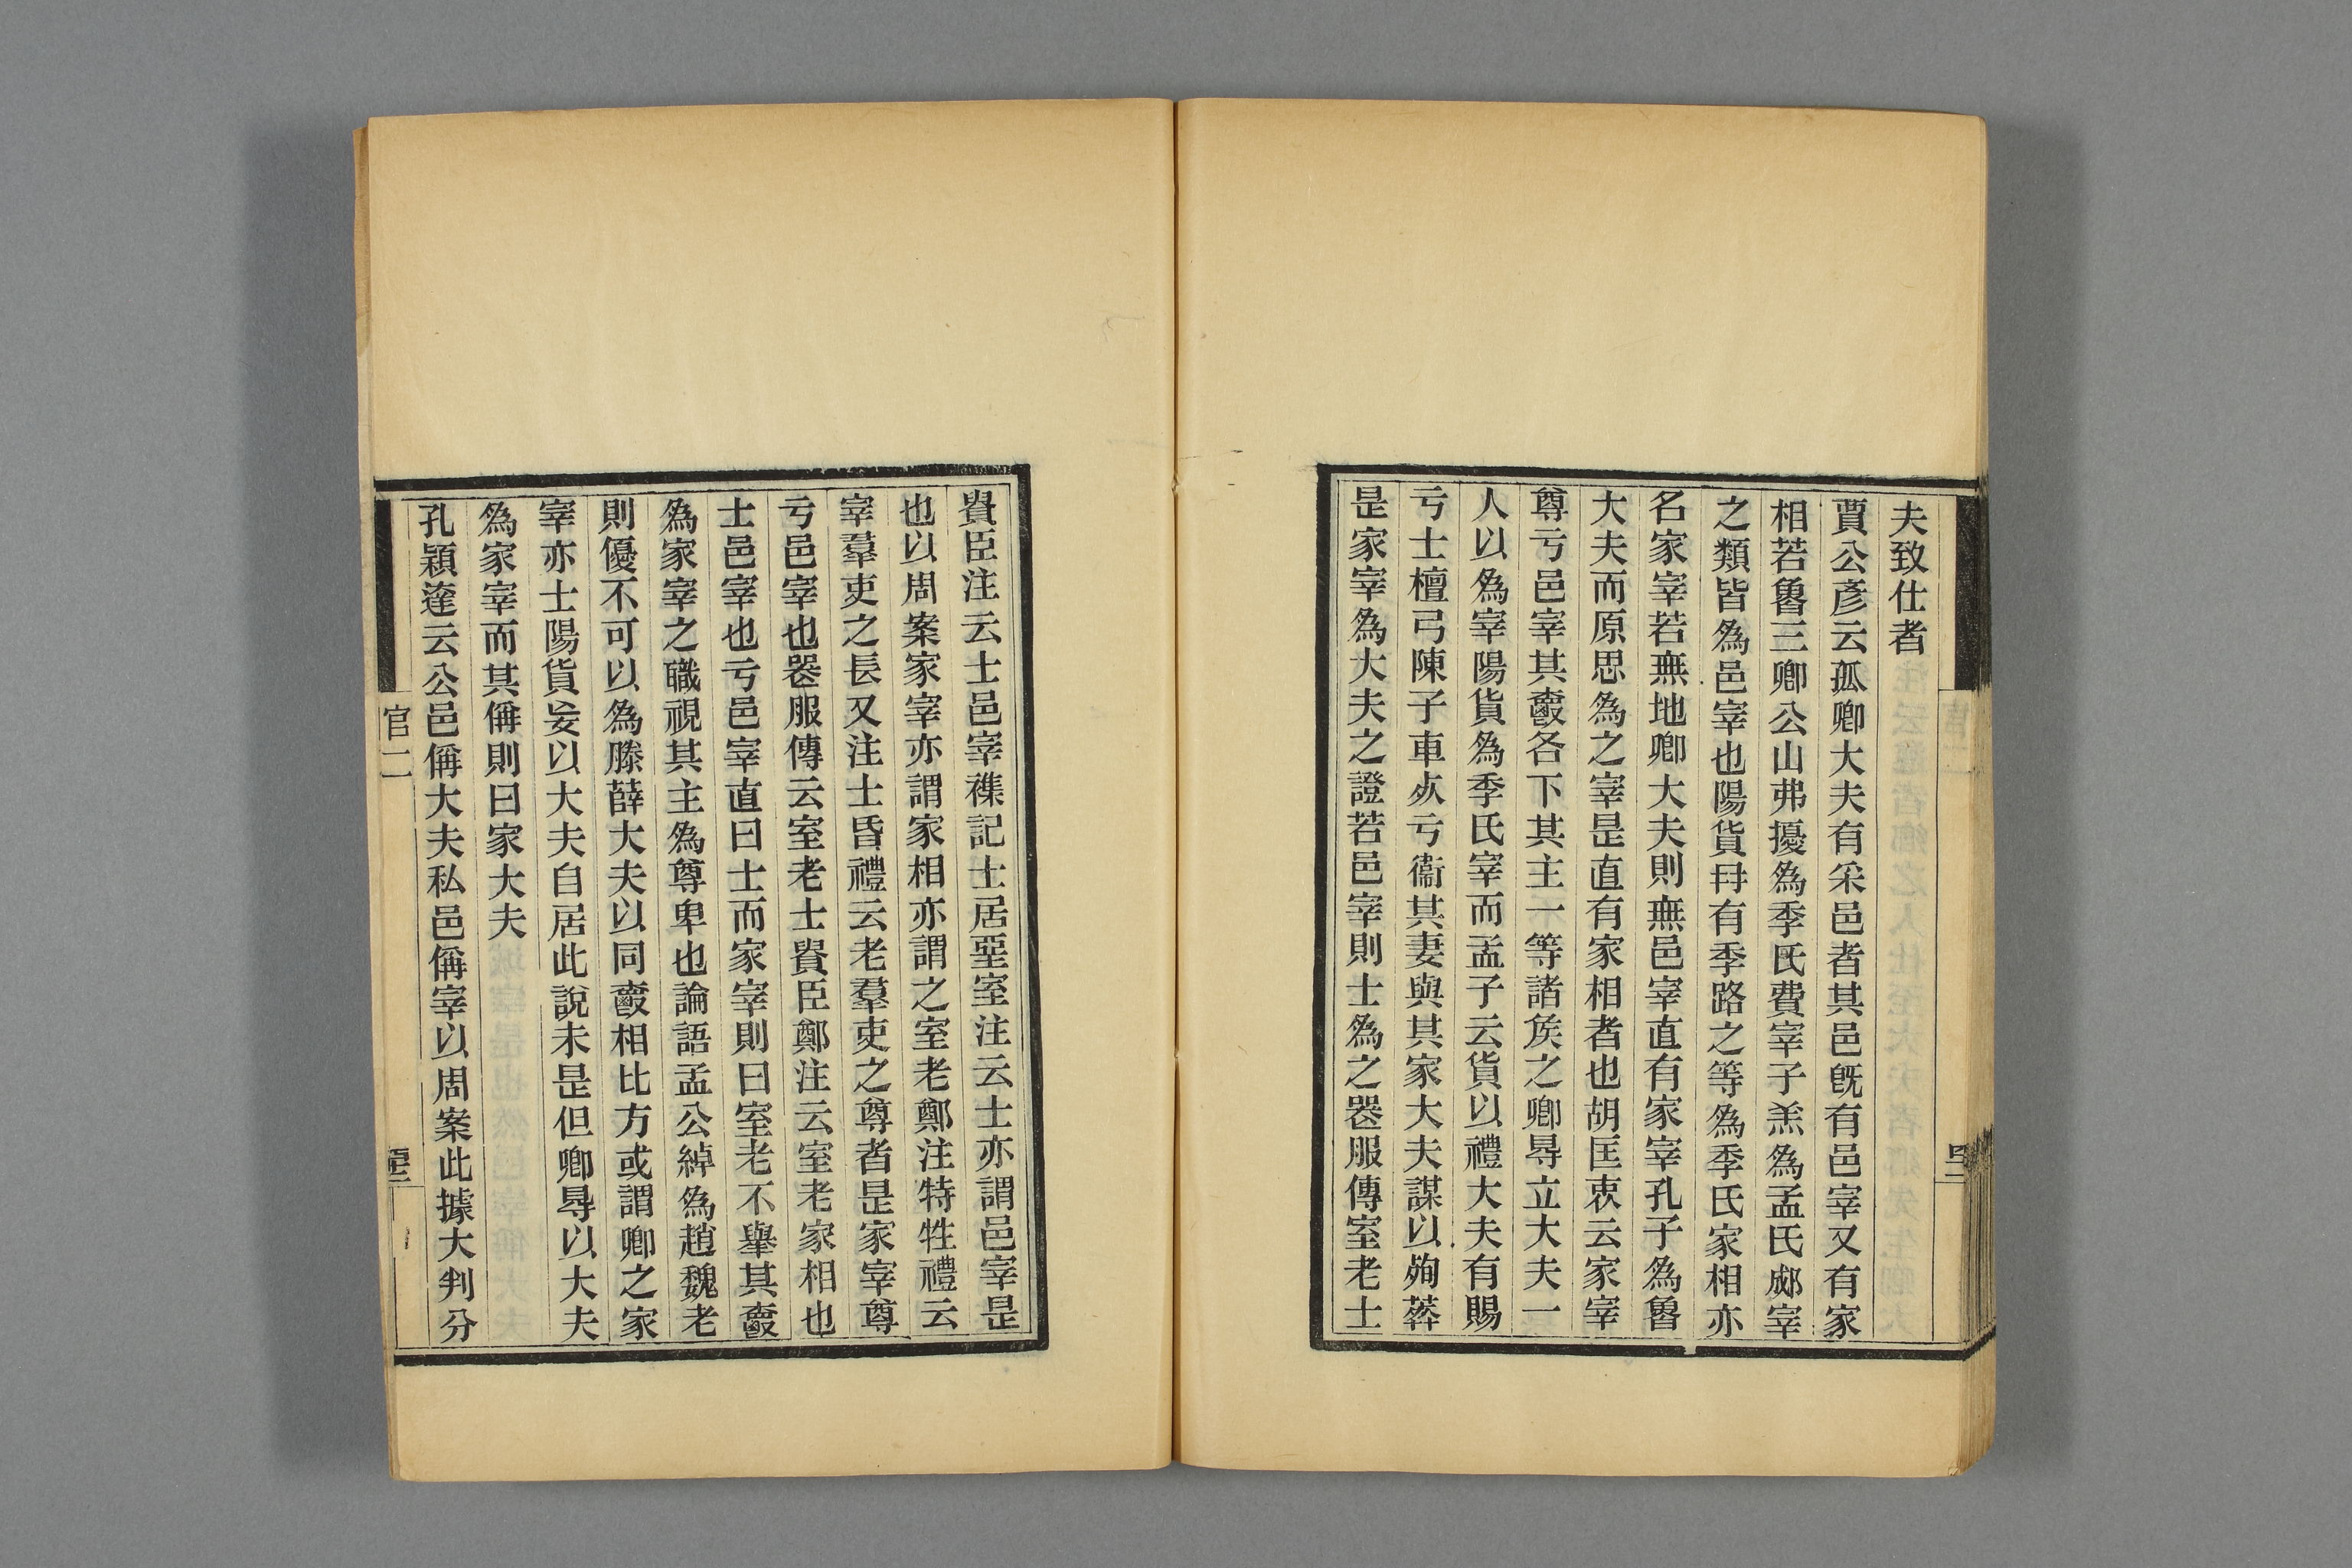 夫致仕者
賈公彥云孤卿大夫有采邑者其邑旣有邑宰又有家
相若魯三卿公山弗擾爲季氏費宰子羔爲孟氏郕宰
之類皆爲邑宰也陽貨冄有季路之等爲季氏家相亦
名家宰若無地卿大夫則無邑宰直有家宰孔子爲魯
大夫而原思爲之宰是直有家相者也胡匡衷云家宰
尊亏邑宰其爵各下其主一等諸矦之卿得立大夫一
人以爲宰陽貨爲季氏宰而孟子云貨以禮大夫有賜
亏士檀弓陳子車𣦸亏衞其妻與其家大夫謀以殉葬
是家宰爲大夫之證若邑宰則士爲之器服傳室老士
貴臣注云士邑宰襍記士居堊室注云士亦謂邑宰是
也以周案家宰亦謂家相亦謂之室老鄭注特牲禮云
宰羣吏之長又注士昏禮云老羣吏之尊者是家宰尊
亏邑宰也器服傳云室老士貴臣鄭注云室老家相也
士邑宰也亏邑宰直曰士而家宰則曰室老不舉其爵
爲家宰之職視其主爲尊卑也論語孟公綽爲趙魏老
則優不可以爲滕薛大夫以同爵相比方或謂卿之家
宰亦士陽貨妄以大夫自居此說未是但卿得以大夫
爲家宰而其偁則曰家大夫
孔穎達云公邑偁大夫私邑偁宰以周案此據大判分
官二